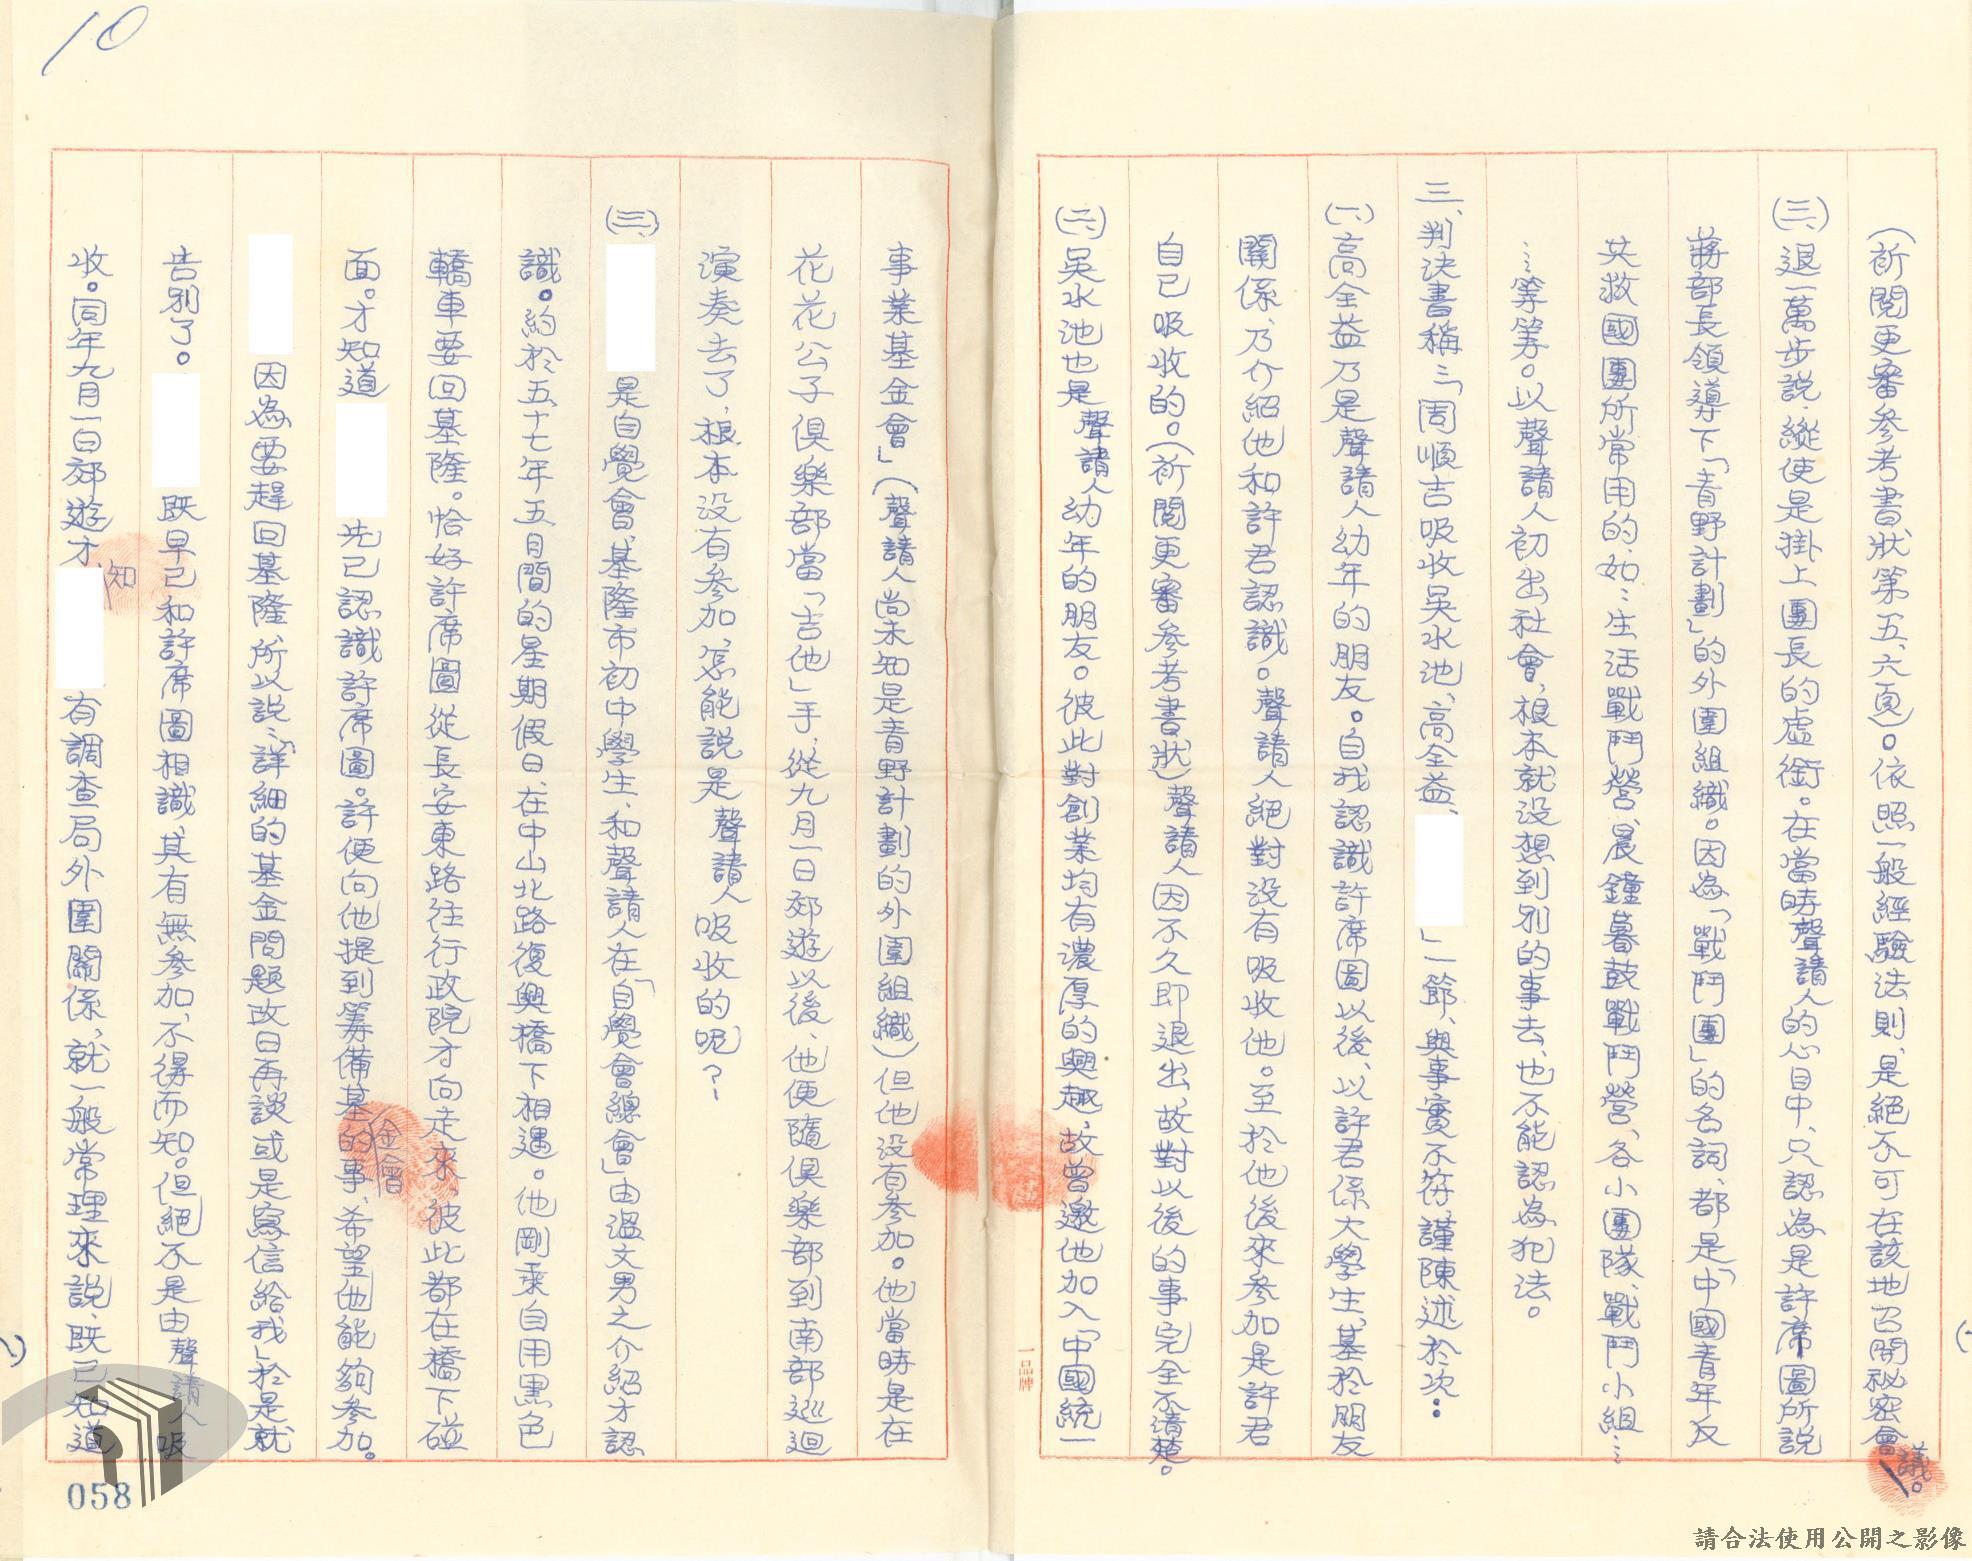 10
(祈閱更審參考書狀第五、六頁)。依照一般經驗法則、是絕不可在該地召開秘密會議。
(三)、退一萬步說、縱使是掛上團長的虛銜。在當時聲請人的心目中、只認為是許席圖所說
蔣部長領導下「青野計劃」的外圍組織。因為「戰鬥團」的名詞、都是「中國青年反
共救國團所常用的、如:生活戰鬥營、晨鐘暮鼓戰鬥營、各小團隊、戰鬥小組…
…等等。以聲請人初出社會、根本就沒想到別的事去、也不能認為犯法。
三、判決書稱:「周順吉吸收吳水池、高全益、」一節、與事實不符、謹陳述於次:
(一)、高全益乃是聲請人幼年的朋友。自我認識許席圖以後、以許君係大學生、基於朋友
關係、乃介紹他和許君認識。聲請人絕對沒有吸收他。至於他後來參加是許君
自己吸收的。(祈閱更審參考書狀)聲請人因不久即退出、故對以後的事完全不清楚。
(二)、吳水池也是聲請人幼年的朋友。彼此對創業均有濃厚的興趣、故曾邀他加入「中國統一
事業基金會」(聲請人尚未知是青野計劃的外圍組織)但他沒有參加。他當時是在
花花公子俱樂部當「吉他」手、從九月一日郊遊以後、他便隨俱樂部到南部巡迴
演奏去了、根本沒有參加、怎能說是聲請人吸收的呢?
(三)、是自覺會、基隆市初中學生、和聲請人在「自覺會總會」由溫文男之介紹才認
識。約於五十七年五月間的星期假日、在中山北路復興橋下相遇。他剛乘自用黑色
轎車要回基隆。恰好許席圖從長安東路往行政院方向走來、彼此都在橋下碰
面。才知道先已認識許席圖。許便向他提到籌備基金會的事、希望他能夠參加。
因為要趕回基隆、所以說:「詳細的基金問題改日再談或是寫信給我」於是就
告別了。既早已和許席圖相識、其有無參加、不得而知。但絕不是由聲請人吸
收。同年九月一日郊遊才知有調查局外圍關係、就一般常理來說、既已知道
一品牌
058
請合法使用公開之影像